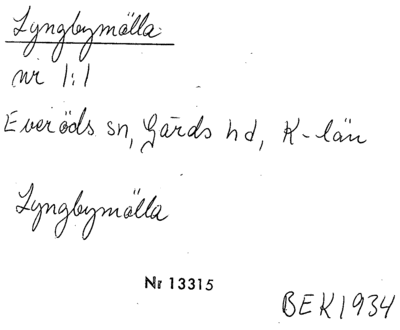 Lyngbymölla
nr 1:1
Everöds sn, Gärds hd, K-län
Lyngbymölla
Nr 13315
BEK 1934